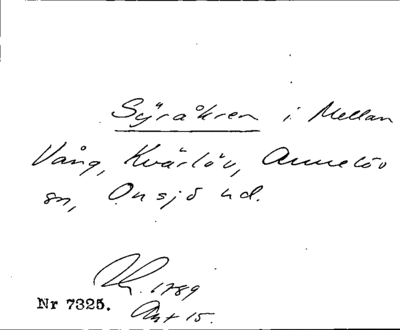 Syråkren i Mellan
Vång, Kvärlöv, Annelöv
sn, Onsjö hd.
1789
Nr 7325. Akt 15.